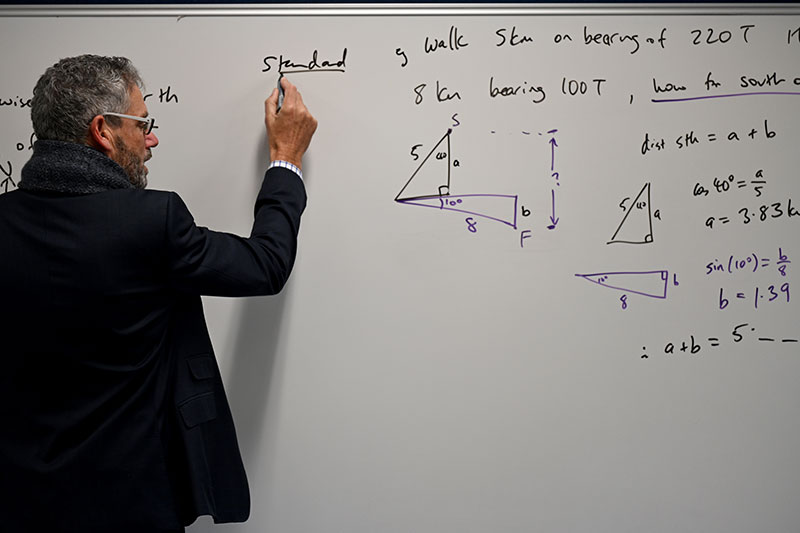 Standard
wise
rth
of
eg walk 5km on bearing of 220T
8 km bearing 100T, how far south
S
5
40
a
?
10°
b
8
F
dist sth = a + b
5
40
a
cos 40° = a/5
a = 3.83k
10°
8
b
sin(10°) = b/8
b = 1.39
∴ a+b = 5. _ _